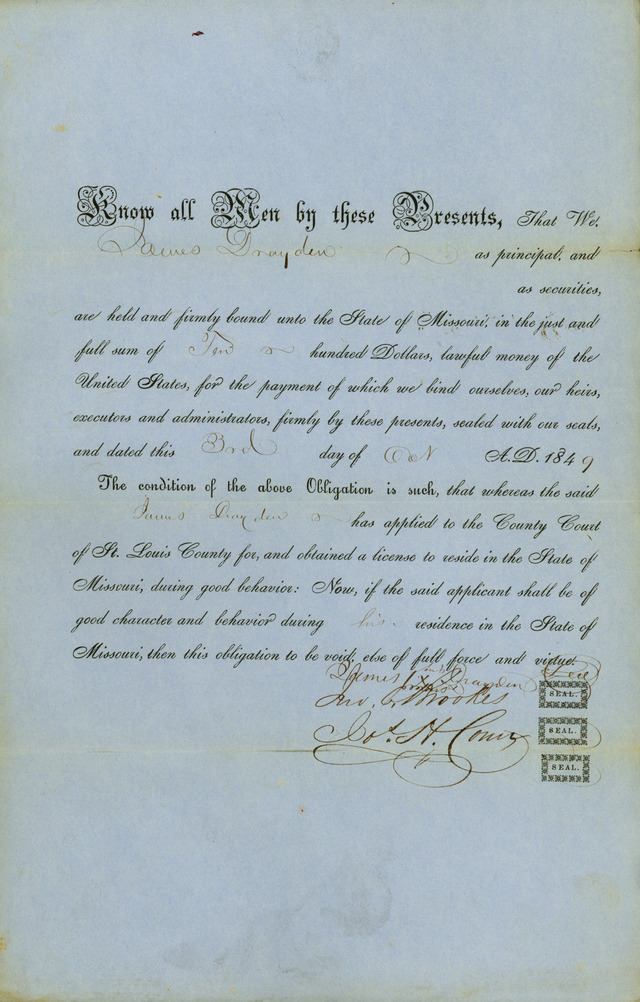 Know all Men by these Presents, That We,
James Drayden as principal, and
as securities,
are held and firmly bound unto the State of Missouri, in the just and
full sum of Ten hundred Dollars, lawful money of the
United States, for the payment of which we bind ourselves, our heirs,
executors and administrators, firmly by these presents, sealed with our seals,
and dated this 3rd day of Oct A.D. 1849
The condition of the above Obligation is such, that whereas the said
James Drayden has applied to the County Court
of St. Louis County for, and obtained a license to reside in the State of
Missouri, during good behavior: Now, if the said applicant shall be of
good character and behavior during his residence in the State of
Missouri, then this obligation to be void, else of full force and virtue.
James X Drayden
SEAL.
Jno. Brookes
SEAL.
Jos. H. Conn
SEAL.